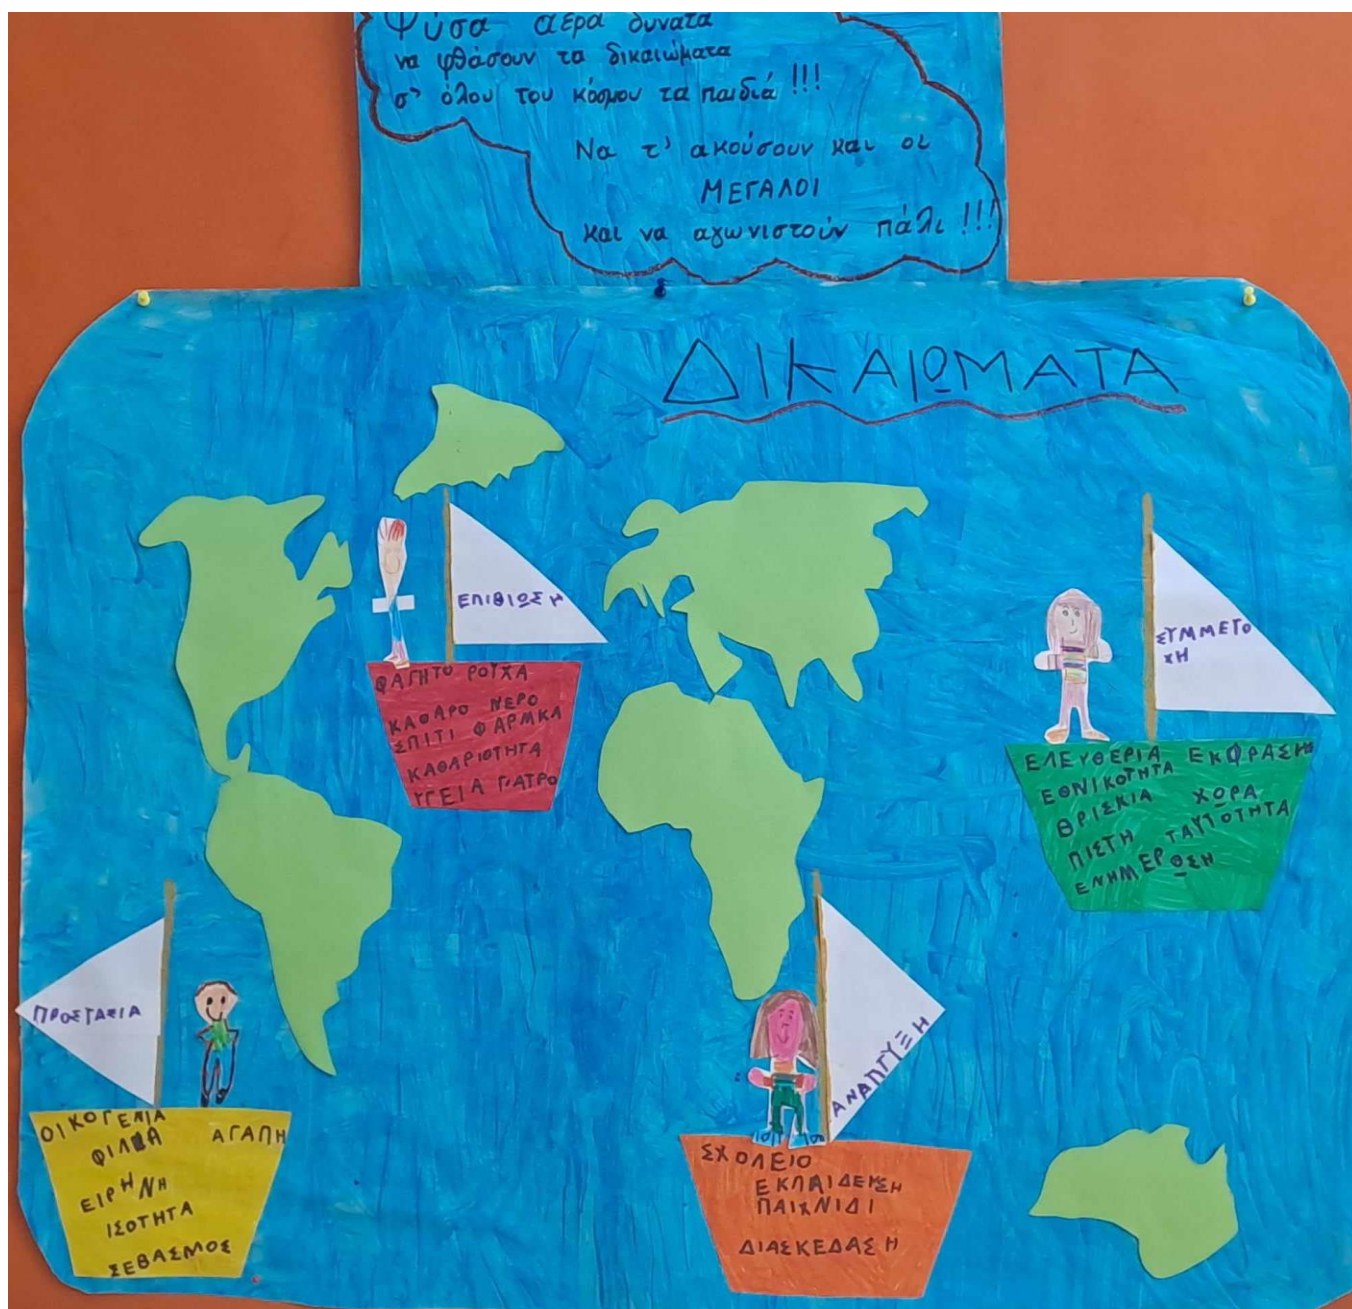 Φύσα αέρα δυνατά
να φθάσουν τα δικαιώματα
σ' όλου του κόσμου τα παιδιά !!!
Να τ' ακούσουν και οι
ΜΕΓΑΛΟΙ
και να αγωνιστούν πάλι !!!
ΔΙΚΑΙΩΜΑΤΑ
ΕΠΙΒΙΩΣΗ
ΦΑΓΗΤΟ ΡΟΥΧΑ
ΚΑΘΑΡΟ ΝΕΡΟ
ΣΠΙΤΙ ΦΑΡΜΚΑ
ΚΑΘΑΡΙΟΤΗΤΑ
ΥΓΕΙΑ ΓΙΑΤΡΟ
ΣΥΜΜΕΤΟ
ΧΗ
ΕΛΕΥΘΕΡΙΑ ΕΚΦΡΑΣΗ
ΕΘΝΙΚΟΤΗΤΑ
ΘΡΙΣΚΙΑ ΧΩΡΑ
ΠΙΣΤΗ ΤΑΥΤΟΤΗΤΑ
ΕΝΗΜΕΡΩΣΗ
ΠΡΟΣΤΑΣΙΑ
ΟΙΚΟΓΕΝΙΑ
ΦΙΛΙΑ ΑΓΑΠΗ
ΕΙΡΗΝΗ
ΙΣΟΤΗΤΑ
ΣΕΒΑΣΜΟΣ
ΑΝΑΠΤΥΞΗ
ΣΧΟΛΕΙΟ
ΕΚΠΑΙΔΕΥΣΗ
ΠΑΙΧΝΙΔΙ
ΔΙΑΣΚΕΔΑΣΗ